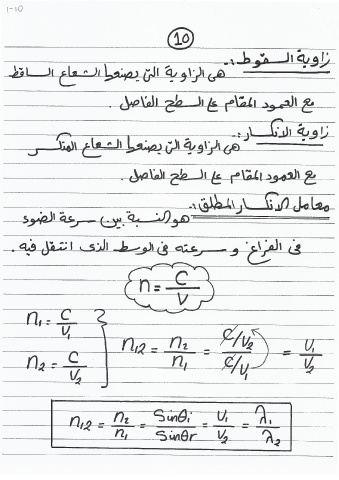 1-10
10
زاوية السقوط :-
هى الزاوية التى يصنعها الشعاع الساقط
مع العمود المقام على السطح الفاصل .
زاوية الانكسار :-
هى الزاوية التى يصنعها الشعاع المنكسر
مع العمود المقام على السطح الفاصل .
معامل الانكسار المطلق :-
هو النسبة بين سرعة الضوء
فى الفراغ و سرعته فى الوسط الذى انتقل فيه .
n = C/V
n1 = C/V1
n2 = C/V2
n12 = n2/n1 = (C/V2)/(C/V1) = V1/V2
n12 = n2/n1 = Sinθi/Sinθr = V1/V2 = λ1/λ2